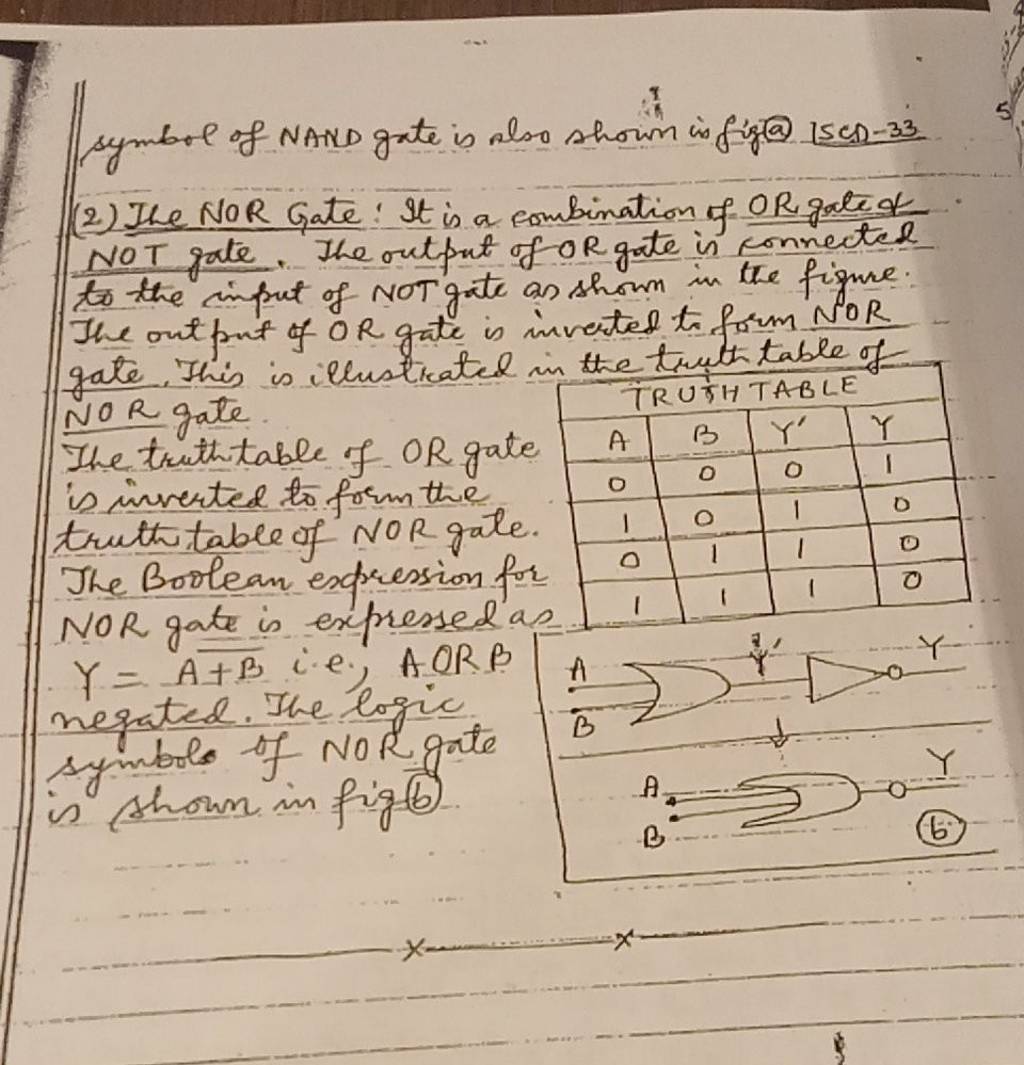 symbol of NAND gate is also shown in fig ⓐ SCD-33
(2) The NOR Gate: It is a combination of OR gate &
NOT gate. The output of OR gate is connected
to the input of NOT gate as shown in the figure.
The output of OR gate is inverted to form NOR
gate. This is illustrated in the truth table of
NOR gate.
The truth table of OR gate
is inverted to form the
truth table of NOR gate.
The Boolean expression for
NOR gate is expressed as
Y = A̅+̅B̅ i.e., A OR B
negated. The logic
symbols of NOR gate
is shown in fig ⓑ.
TRUTH TABLE
A B Y' Y
0 0 0 1
1 0 1 0
0 1 1 0
1 1 1 0
A Y' Y
B
A Y
B
ⓑ